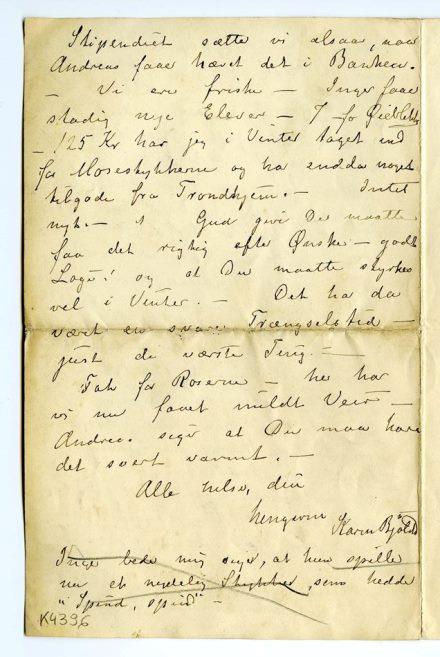 Stipendiet sætte vi altsaa, naar
Andreas faar hævet det i Banken.
— Vi ere friske — Inger faar
stadig nye Elever — 7 for Øieblikk
— 125 Kr har jeg i Vinter taget ind
for Mosestykkerne og har endda noget
tilgode fra Trondhjem. — Intet
nyt. — Gud give De maatte
faa det rigtig efter Ønske — godt
Logi! og at Du maatte styrkes
vel i Vinter. — Det har da
været en svare Trængselstid —
just de værste Ting. —
Tak for Roserne — her har
vi nu faaet mildt Veir —
Andreas siger at Du maa have
det svært varmt. —
Alle hilse, din
hengivne
Karen Bjølstad
Inge bede mig sige, at hun spille
nu et nydelig Stykke, som hedde
"Spind, spind" —
K4396